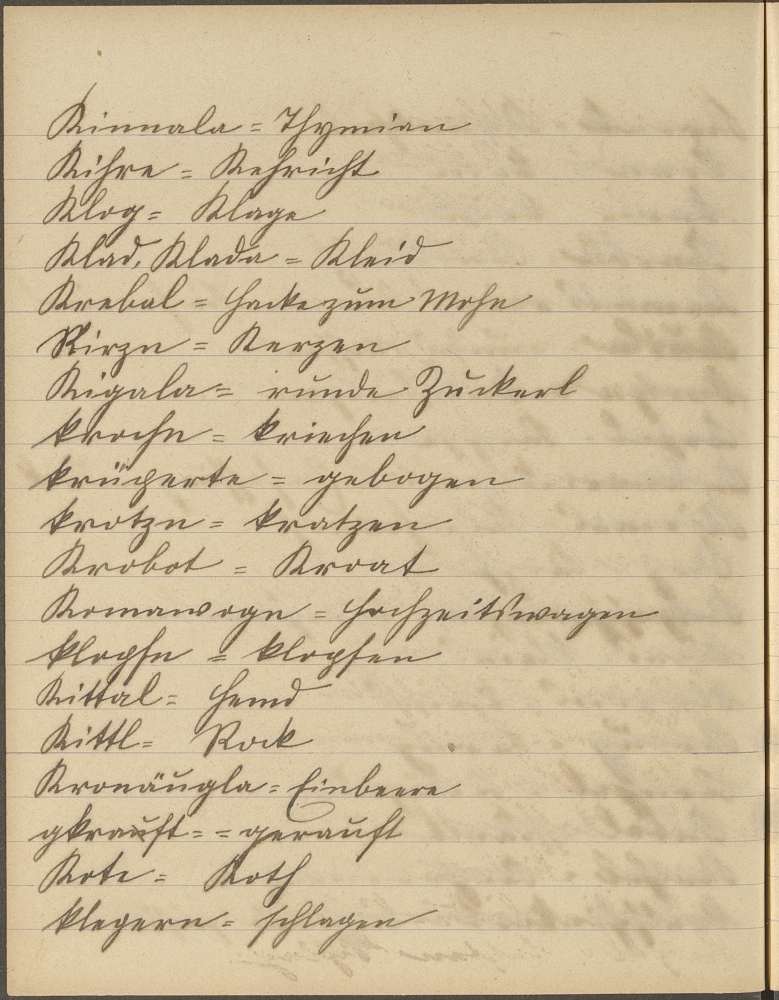 Kinnala = Thymian
Kihre = Kehricht
Klog = Klage
Klad, Klada = Kleid
Krebal = Hacke zum Mohn
Kirzn = Kerzen
Kigala = runde Zuckerl
krochn = kriechen
krüperte = gebogen
krotzn = kratzen
Krobot = Kroat
Komawogn = Hochzeitswagen
klopfn = klopfen
Kittal = Hemd
Kittl = Rock
Kronäugla = Einbeere
gkrauft = = gerauft
Kote = Koth
klegern = schlagen